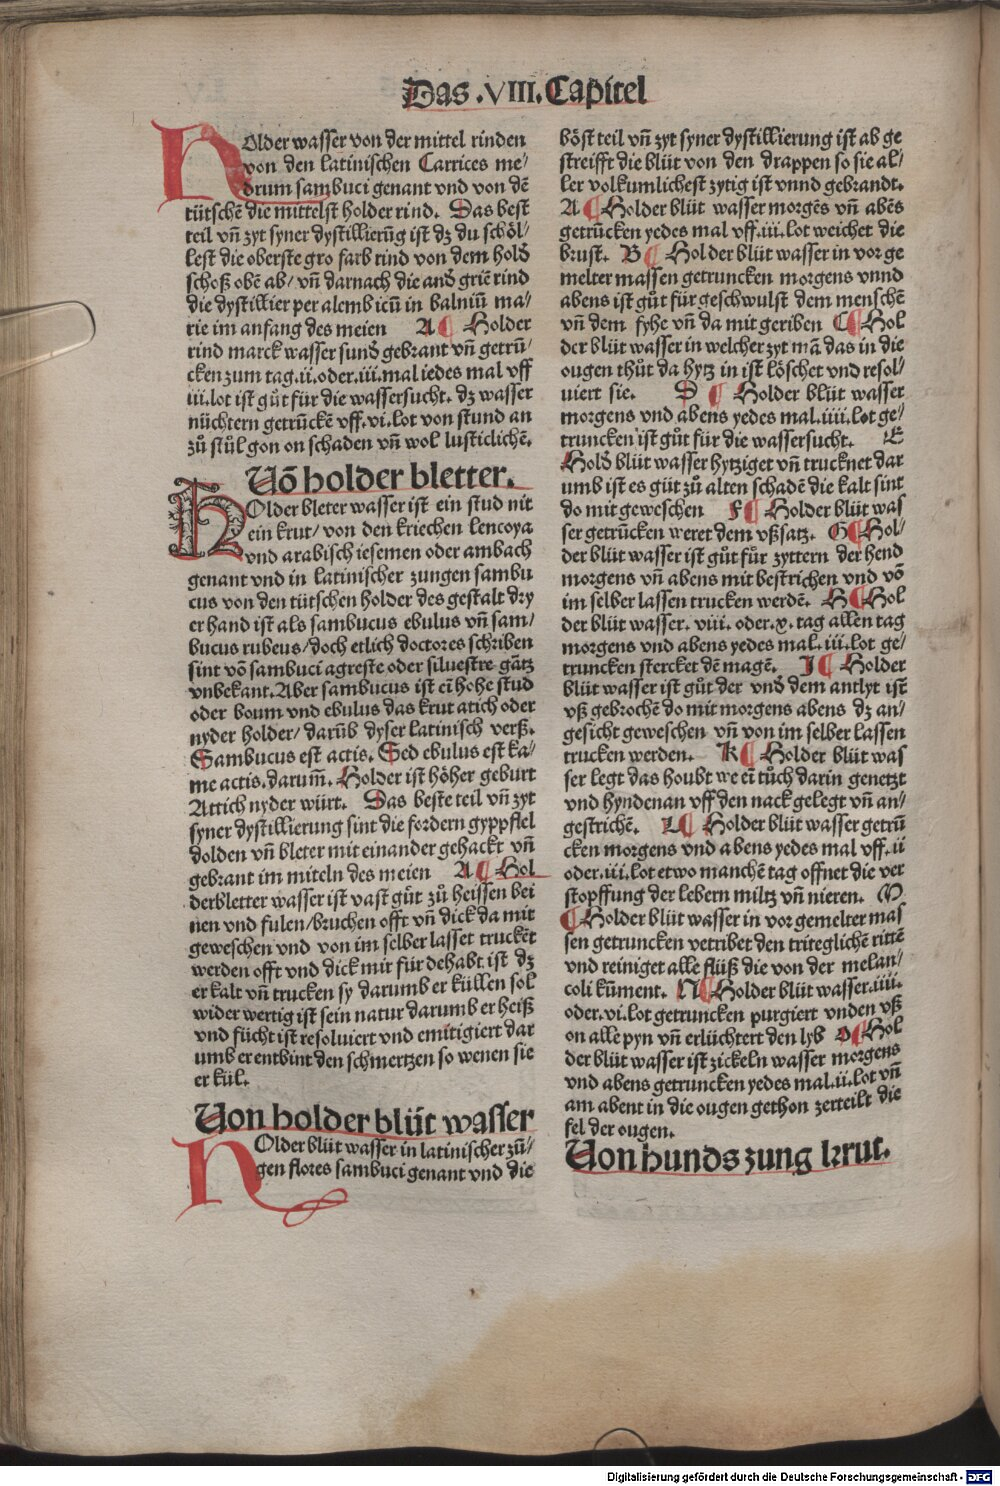 Das .VIII. Capitel
HOlder wasser von der mittel rinden
von den latinischen Carrices me-
drum sambuci genant vnd von dē
tütschē die mittelst holder rind. Das best
teil vn̄ zyt syner dystillierūg ist dz du schöl-
lest die oberste gro farb rind von dem hold̄
schoß obē ab/ vn̄ darnach die and̄ griē rind
die dystillier per alembicū in balniū ma-
rie im anfang des meien A ¶ Holder
rind marck wasser sund̄ gebrant vn̄ getrū-
cken zum tag.ii.oder.iii.mal iedes mal vff
iii.lot ist gůt für die wassersucht. dz wasser
nüchtern getrūckē vff.vi.lot von stund an
zů stůl gon on schaden vn̄ wol lusticlichē.
Uō holder bletter.
HOlder bleter wasser ist ein stud nit
ein krut/ von den kriechen lencoya
vnd arabisch iesemen oder ambach
genant vnd in latinischer zungen sambu
cus von den tütschen holder des gestalt dry
er hand ist als sambucus ebulus vn̄ sam-
bucus rubeus/doch etlich doctores schriben
sint vō sambuci agreste oder siluestre gātz
vnbekant.Aber sambucus ist eī hohe stud
oder boum vnd ebulus das krut atich oder
nyder holder/ darūb dyser latinisch verß.
Sambucus est actis. Sed ebulus est ka-
me actis.darum̄. Holder ist höher geburt
Attich nyder würt. Das beste teil vn̄ zyt
syner dystillierung sint die fordern gyppflel
dolden vn̄ bleter mit einander gehackt vn̄
gebrant im miteln des meien A ¶ Hol
derbletter wasser ist vast gůt zů heissen bei
nen vnd fulen/bruchen offt vn̄ dick da mit
geweschen vnd von im selber lasset truckēt
werden offt vnd dick mir für dehabt ist dz
er kalt vn̄ trucken sy darumb er küllen sol
wider wertig ist sein natur darumb er heiß
vnd fücht ist resoluiert vnd emitigiert dar
umb er entbint den schmertzen so wenen sie
er kül.
Uon holder blůt wasser
HOlder blüt wasser in latinischer zū-
gen flores sambuci genant vnd die
böst teil vn̄ zyt syner dystillierung ist ab ge
streifft die blüt von den drappen so sie al-
ler volkumlichest zytig ist vnnd gebrandt.
A ¶ Holder blüt wasser morgēs vn̄ abēs
getrūcken yedes mal vff.iii.lot weichet die
brust. B ¶ Holder blüt wasser in vor ge
melter massen getruncken morgens vnnd
abens ist gůt für geschwulst dem menschē
vn̄ dem fyhe vn̄ da mit geriben C ¶ Hol
der blüt wasser in welcher zyt mā das in die
ougen thůt da hytz in ist löschet vnd resol-
uiert sie. D ¶ Holder blüt wasser
morgens vnd abens yedes mal.iiii.lot ge-
truncken ist gůt für die wassersucht. E
Hold̄ blüt wasser hytziget vn̄ trucknet dar
umb ist es gůt zů alten schadē die kalt sint
do mit geweschen F ¶ Holder blüt was
ser getrūcken weret dem vßsatz. G ¶ Hol-
der blüt wasser ist gůt für zyttern der hend
morgens vn̄ abens mit bestrichen vnd vō
im selber lassen trucken werdē. H ¶ Hol
der blüt wasser. viii. oder.x. tag allen tag
morgens vnd abens yedes mal.iii.lot ge-
truncken stercket dē magē. J ¶ Holder
blüt wasser ist gůt der vnd̄ dem antlyt ist
vß gebrochē do mit morgens abens dz an-
gesicht geweschen vn̄ von im selber lassen
trucken werden. K ¶ Holder blüt was
ser legt das houbt we eī tůch darin genetzt
vnd hyndenan vff den nack gelegt vn̄ an-
gestrichē. L ¶ Holder blüt wasser getrū
cken morgens vnd abens yedes mal vff.ii
oder.iii.lot etwo manchē tag offnet die ver
stopffung der lebern miltz vn̄ nieren. M
¶ Holder blüt wasser in vor gemelter mas
sen getruncken vetribet den triteglichē rittē
vnd reiniget alle flüß die von der melan-
coli kūment. N ¶ Holder blüt wasser.iiii.
oder.vi.lot getruncken purgiert vnden vß
on alle pyn vn̄ erlüchtert den lyb O ¶ Hol
der blüt wasser ist zickeln wasser morgens
vnd abens getruncken yedes mal.ii.lot vn̄
am abent in die ougen gethon zerteilt die
fel der ougen.
Uon hunds zung krut.
Digitalisierung gefördert durch die Deutsche Forschungsgemeinschaft - DFG